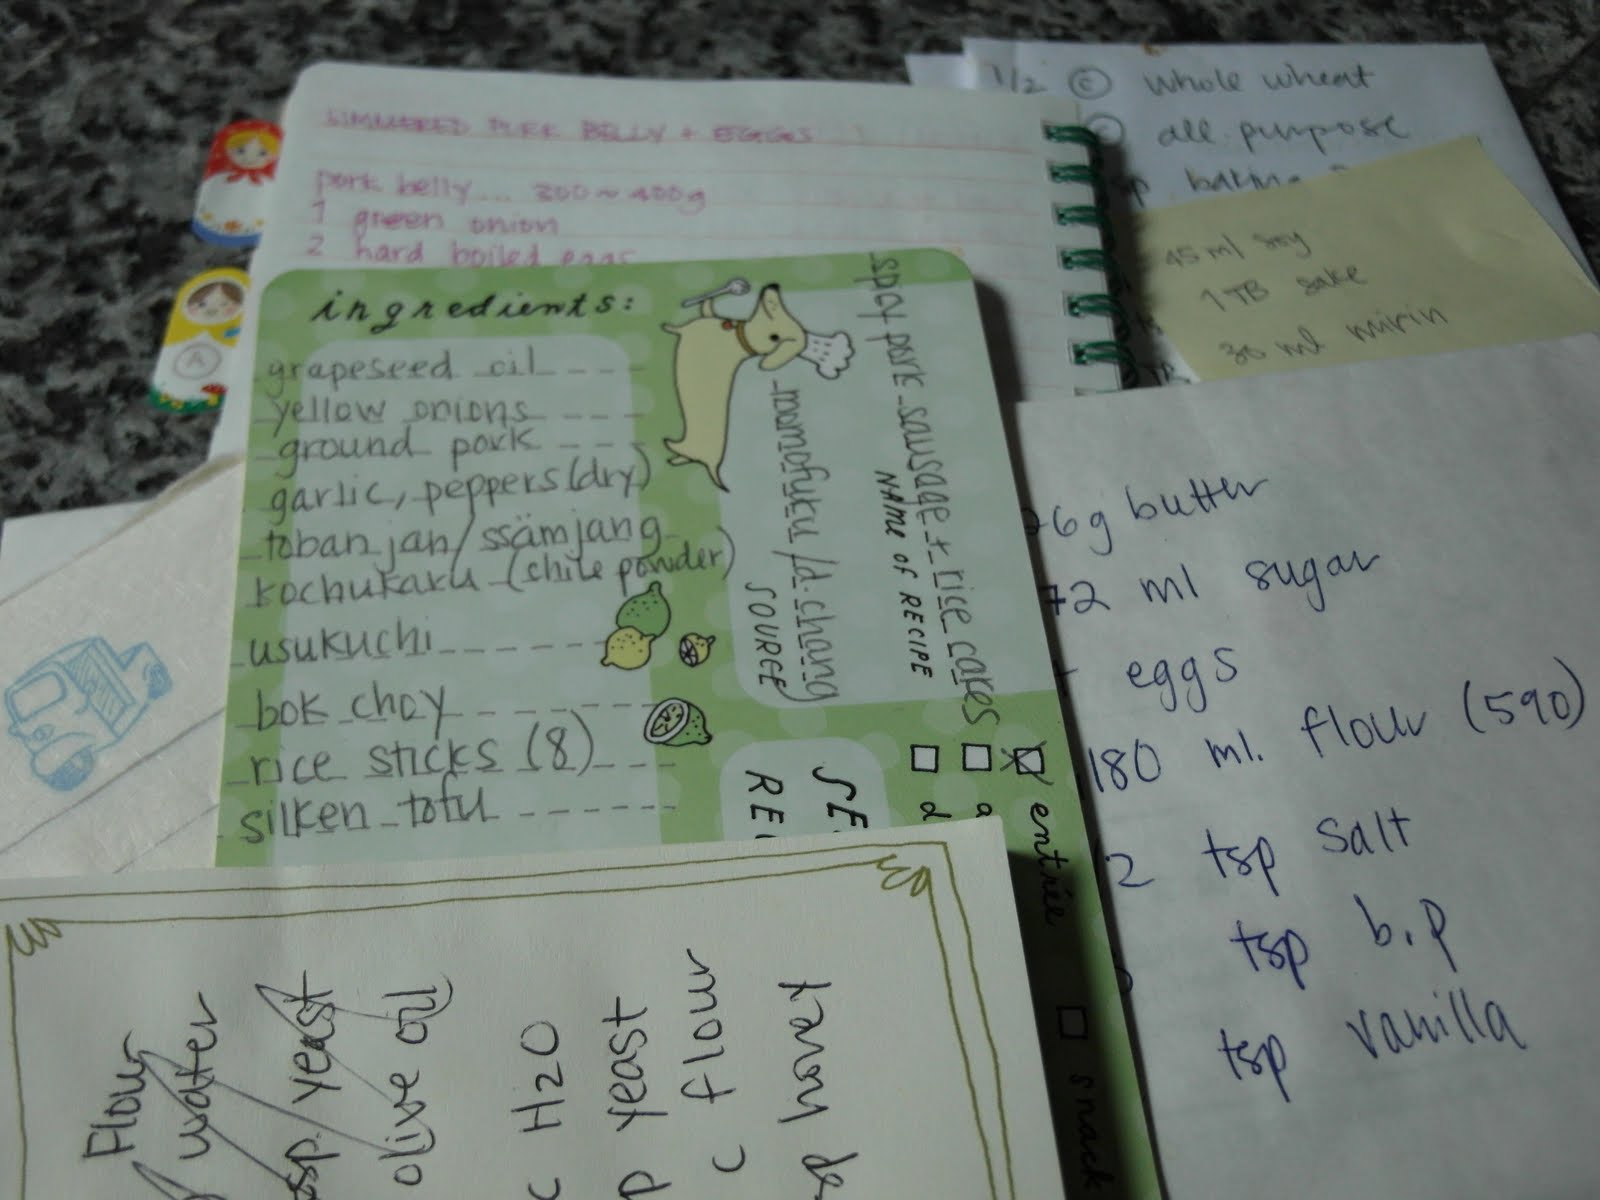 SIMMERED PORK BELLY + EGGGS
pork belly... 300~400g
1 green onion
2 hard boiled eggs
1/2 © whole wheat
© all purpose
baking
45 ml soy
1 TB sake
30 ml mirin
ingredients:
grapeseed oil
yellow onions
ground pork
garlic, peppers (dry)
tobanjan/ssämjang
kochukaru (chile powder)
usukuchi
bok choy
rice sticks (8)
silken tofu
spicy pork sausage + rice cakes
NAME OF RECIPE
momofuku/d.chang
SOURCE
entrée
a
d
snack
SE
REC
6g butter
2 ml sugar
eggs
180 ml. flour (590)
2 tsp salt
tsp b.p
tsp vanilla
Flour
water
sp. yeast
olive oil
c H2O
p yeast
c flour
honey
A